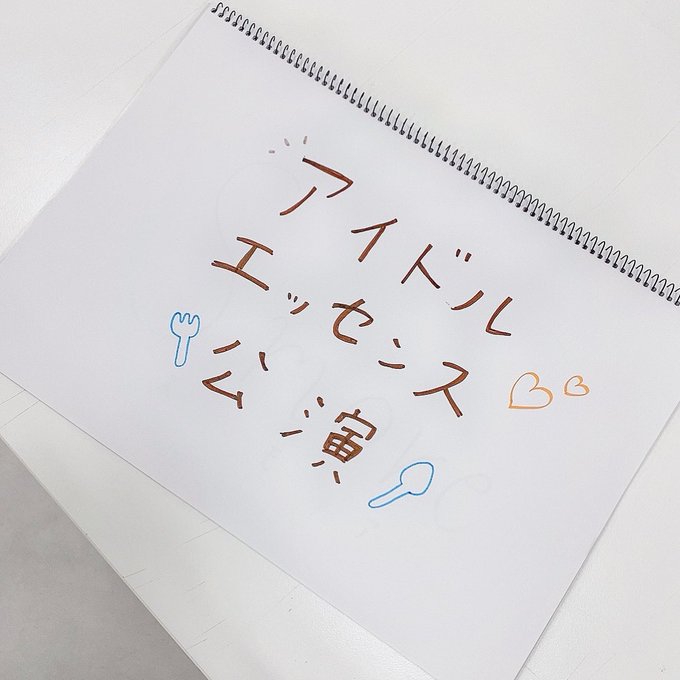 アイドル
エッセンス
公演